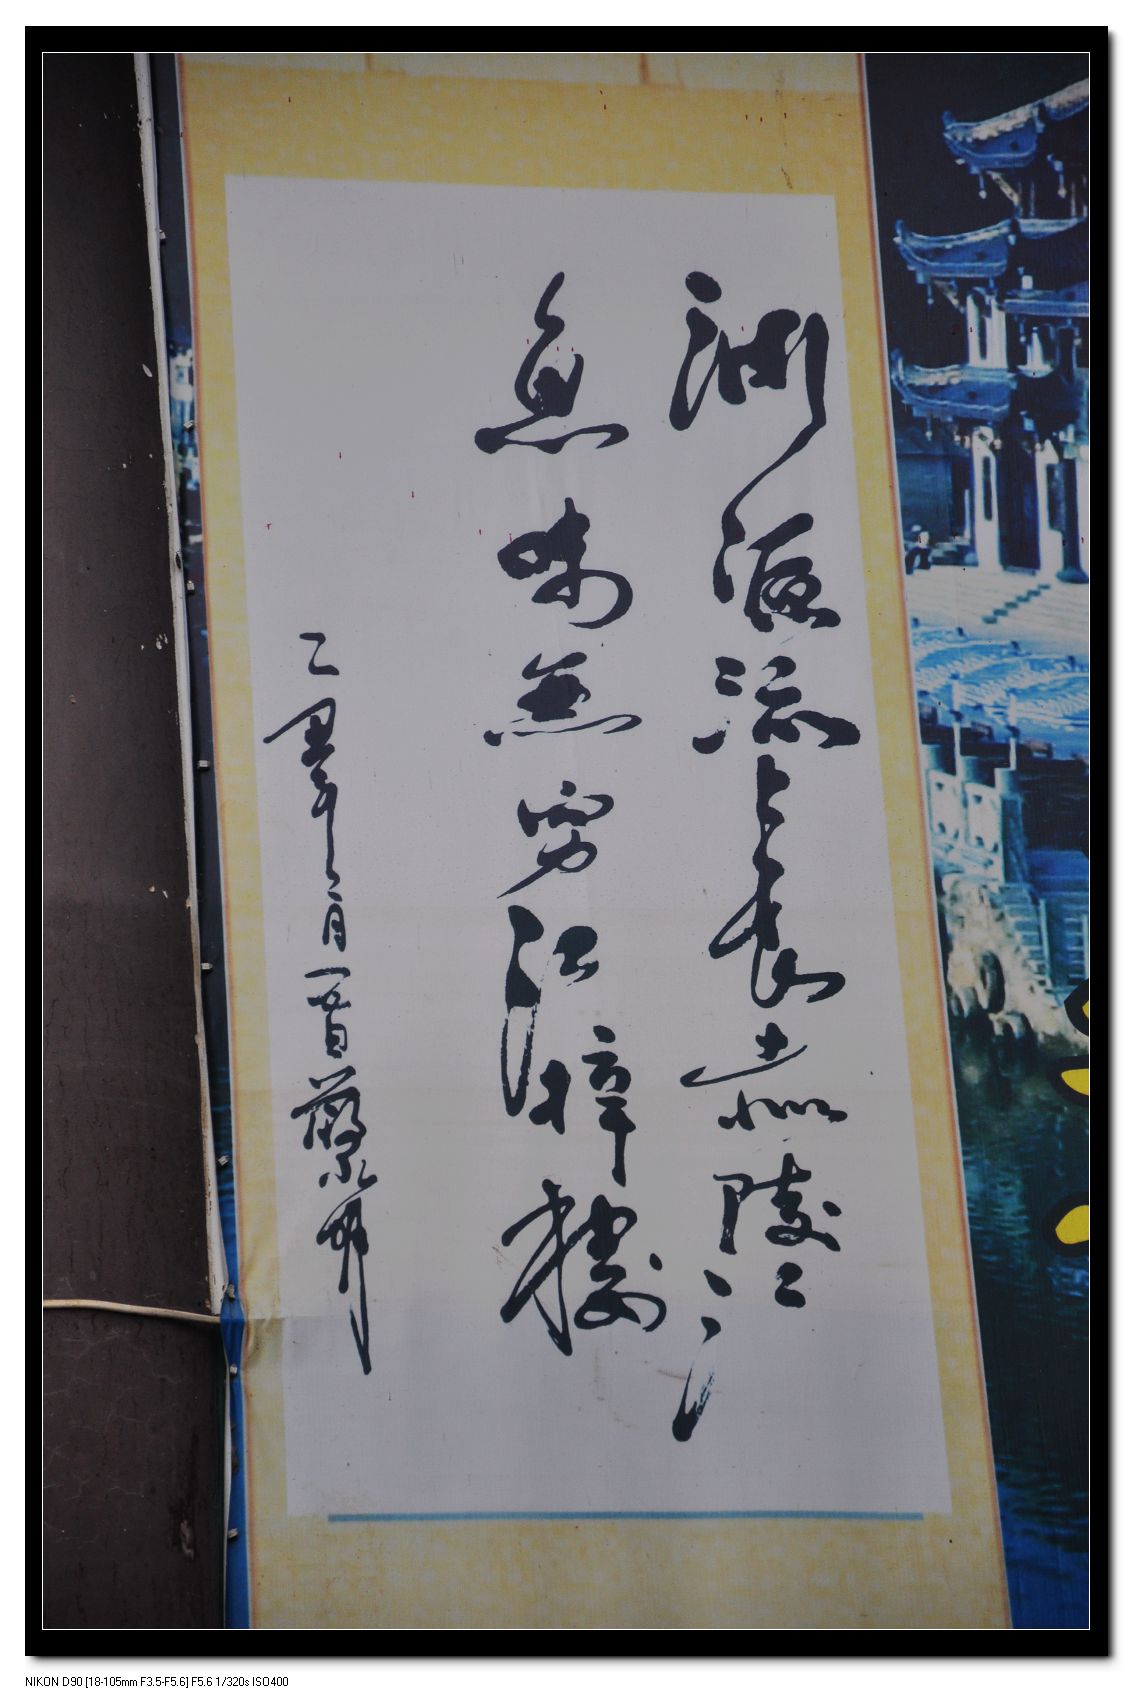 渊源流长嘉陵江
鱼味無穷江梓楼
乙年月
NIKON D90 [18-105mm F3.5-F5.6] F5.6 1/320s ISO400